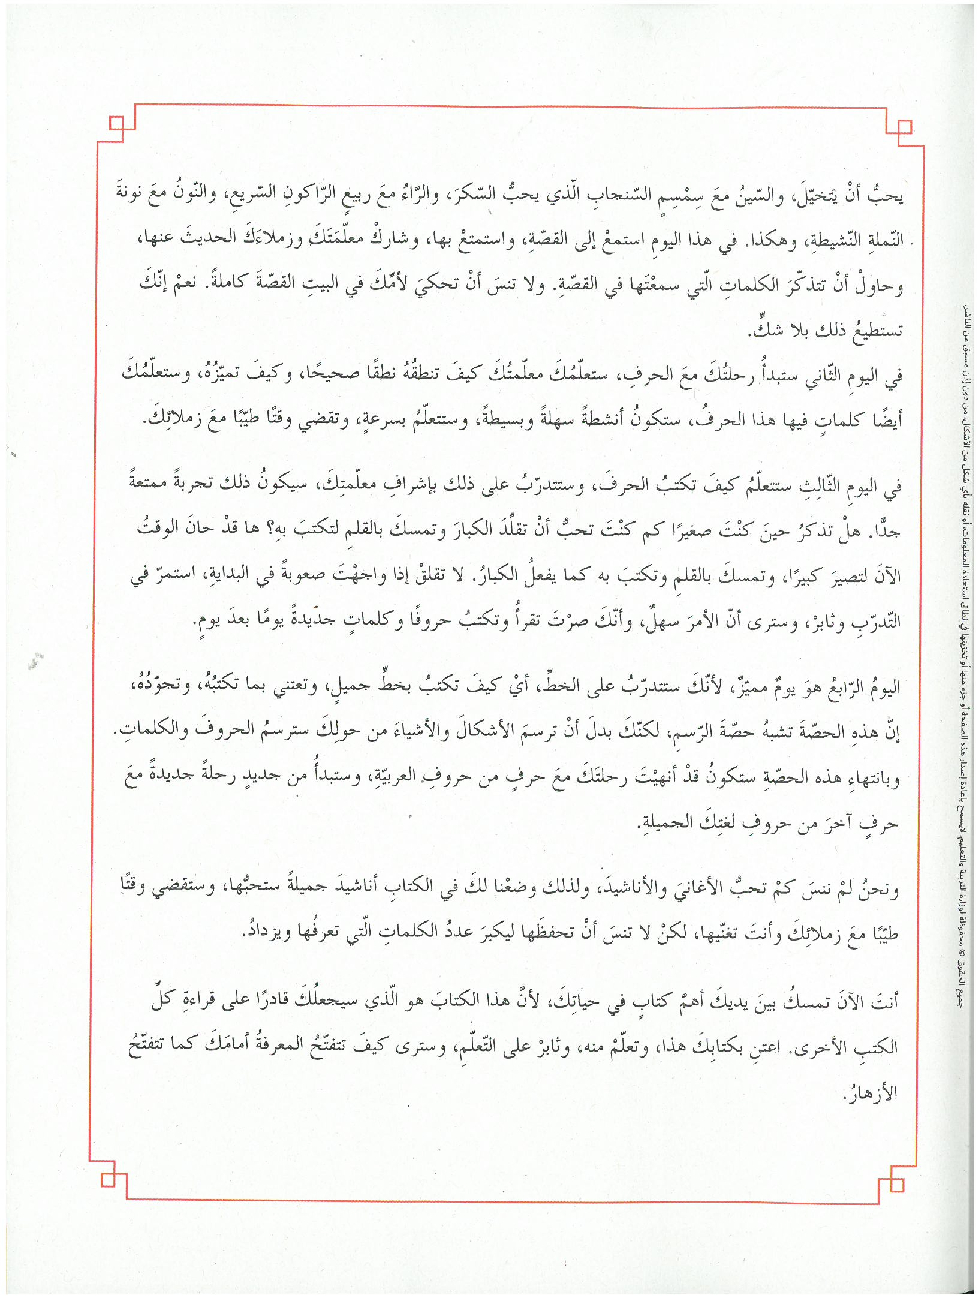 يحبُّ أنْ يَتخيّلَ، والسّينُ مَعَ سِمْسِمٍ السّنجابِ الّذي يحبُّ السّكرَ، والرّاءُ مَعَ ربيعٍ الرّاكونِ السّريعِ، والنّونُ مَعَ نونةَ
النّملةِ النّشيطةِ، وهكذا. في هذا اليومِ استمعْ إلى القصّةِ، واستمتعْ بها، وشاركْ معلّمَتَكَ وزملاءَكَ الحديثَ عنها،
وحاولْ أنْ تتذكّرَ الكلماتِ الّتي سمعْتَها في القصّةِ. ولا تنسَ أنْ تحكيَ لأمّكَ في البيتِ القصّةَ كاملةً. نعمْ إنّكَ
تستطيعُ ذلك بلا شكٍّ.
في اليومِ الثّاني ستبدأُ رحلتُكَ مَعَ الحرفِ، ستعلّمُكَ معلّمتُكَ كيفَ تنطقُهُ نطقًا صحيحًا، وكيفَ تميّزُهُ، وستعلّمُكَ
أيضًا كلماتٍ فيها هذا الحرفُ، ستكونُ أنشطةً سهلةً وبسيطةً، وستتعلّمُ بسرعةٍ، وتقضي وقتًا طيّبًا مَعَ زملائِكَ.
في اليومِ الثّالثِ ستتعلّمُ كيفَ تكتبُ الحرفَ، وستتدرّبُ على ذلك بإشرافِ معلّمتِكَ، سيكونُ ذلك تجربةً ممتعةً
جدًّا. هلْ تذكرُ حينَ كنْتَ صغيرًا كم كنْتَ تحبُّ أنْ تقلّدَ الكبارَ وتمسكَ بالقلمِ لتكتبَ به؟ ها قدْ حانَ الوقتُ
الآنَ لتصيرَ كبيرًا، وتمسكَ بالقلمِ وتكتبَ به كما يفعلُ الكبارُ. لا تقلقْ إذا واجهْتَ صعوبةً في البدايةِ، استمرّ في
التّدرّبِ وثابرْ، وسترى أنّ الأمرَ سهلٌ، وأنّكَ صرْتَ تقرأُ وتكتبُ حروفًا وكلماتٍ جديدةً يومًا بعدَ يومٍ.
اليومُ الرّابعُ هوَ يومٌ مميّزٌ، لأنّكَ ستتدرّبُ على الخطِّ، أيْ كيفَ تكتبُ بخطٍّ جميلٍ، وتعتني بما تكتبُهُ، وتجوّدُهُ،
إنّ هذهِ الحصّةَ تشبهُ حصّةَ الرّسمِ، لكنّكَ بدلَ أنْ ترسمَ الأشكالَ والأشياءَ من حولِكَ سترسمُ الحروفَ والكلماتِ.
وبانتهاءِ هذه الحصّةِ ستكونُ قدْ أنهيْتَ رحلتَكَ مَعَ حرفٍ من حروفِ العربيّةِ، وستبدأُ من جديدٍ رحلةً جديدةً مَعَ
حرفٍ آخرَ من حروفِ لغتِكَ الجميلةِ.
ونحنُ لمْ ننسَ كمْ تحبُّ الأغانيَ والأناشيدَ، ولذلك وضعْنا لكَ في الكتابِ أناشيدَ جميلةً ستحبُّها، وستقضي وقتًا
طيّبًا مَعَ زملائِكَ وأنتَ تغنّيها، لكنْ لا تنسَ أنْ تحفظَها ليكبرَ عددُ الكلماتِ الّتي تعرفُها ويزدادُ.
أنتَ الآنَ تمسكُ بينَ يديكَ أهمّ كتابٍ في حياتِكَ، لأنّ هذا الكتابَ هو الّذي سيجعلُكَ قادرًا على قراءةِ كلِّ
الكتبِ الأخرى. اعتنِ بكتابِكَ هذا، وتعلّمْ منه، وثابرْ على التّعلّمِ، وسترى كيفَ تتفتّحُ المعرفةُ أمامَكَ كما تتفتّحُ
الأزهارُ.
جميع الحقوق © محفوظة لوزارة التربية والتعليم. لايسمح بإعادة إصدار هذه الصفحة أو جزء منها أو تخزينها في نطاق استعادة المعلومات أو نقله بأي شكل من الأشكال، من دون إذن مسبق من الناشر.